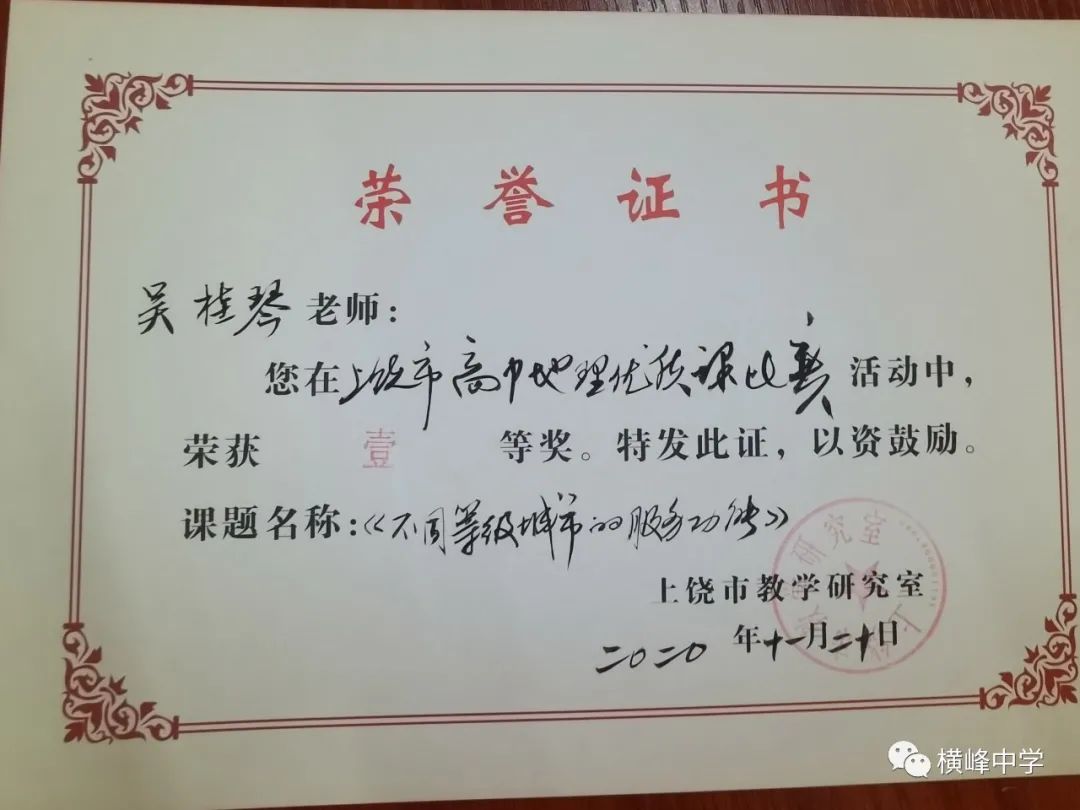 荣誉证书
吴桂琴老师：
您在上饶市高中地理优质课比赛活动中，
荣获 壹 等奖。特发此证，以资鼓励。
课题名称：《不同等级城市的服务功能》
上饶市教学研究室
二〇二〇年十一月二十日
横峰中学